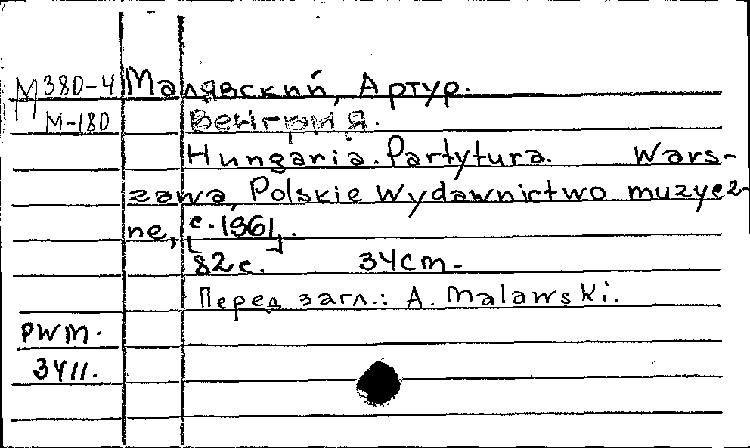 М380-4 Малявский, Артур.
М-180 Венгрия.
Hungaria. Partytura. Wars-
zawa, Polskie Wydawnictwo muzycz-
ne, [c. 1961].
82 с. 34 cm.
Перед загл.: A. Malawski.
PWM.
3411.